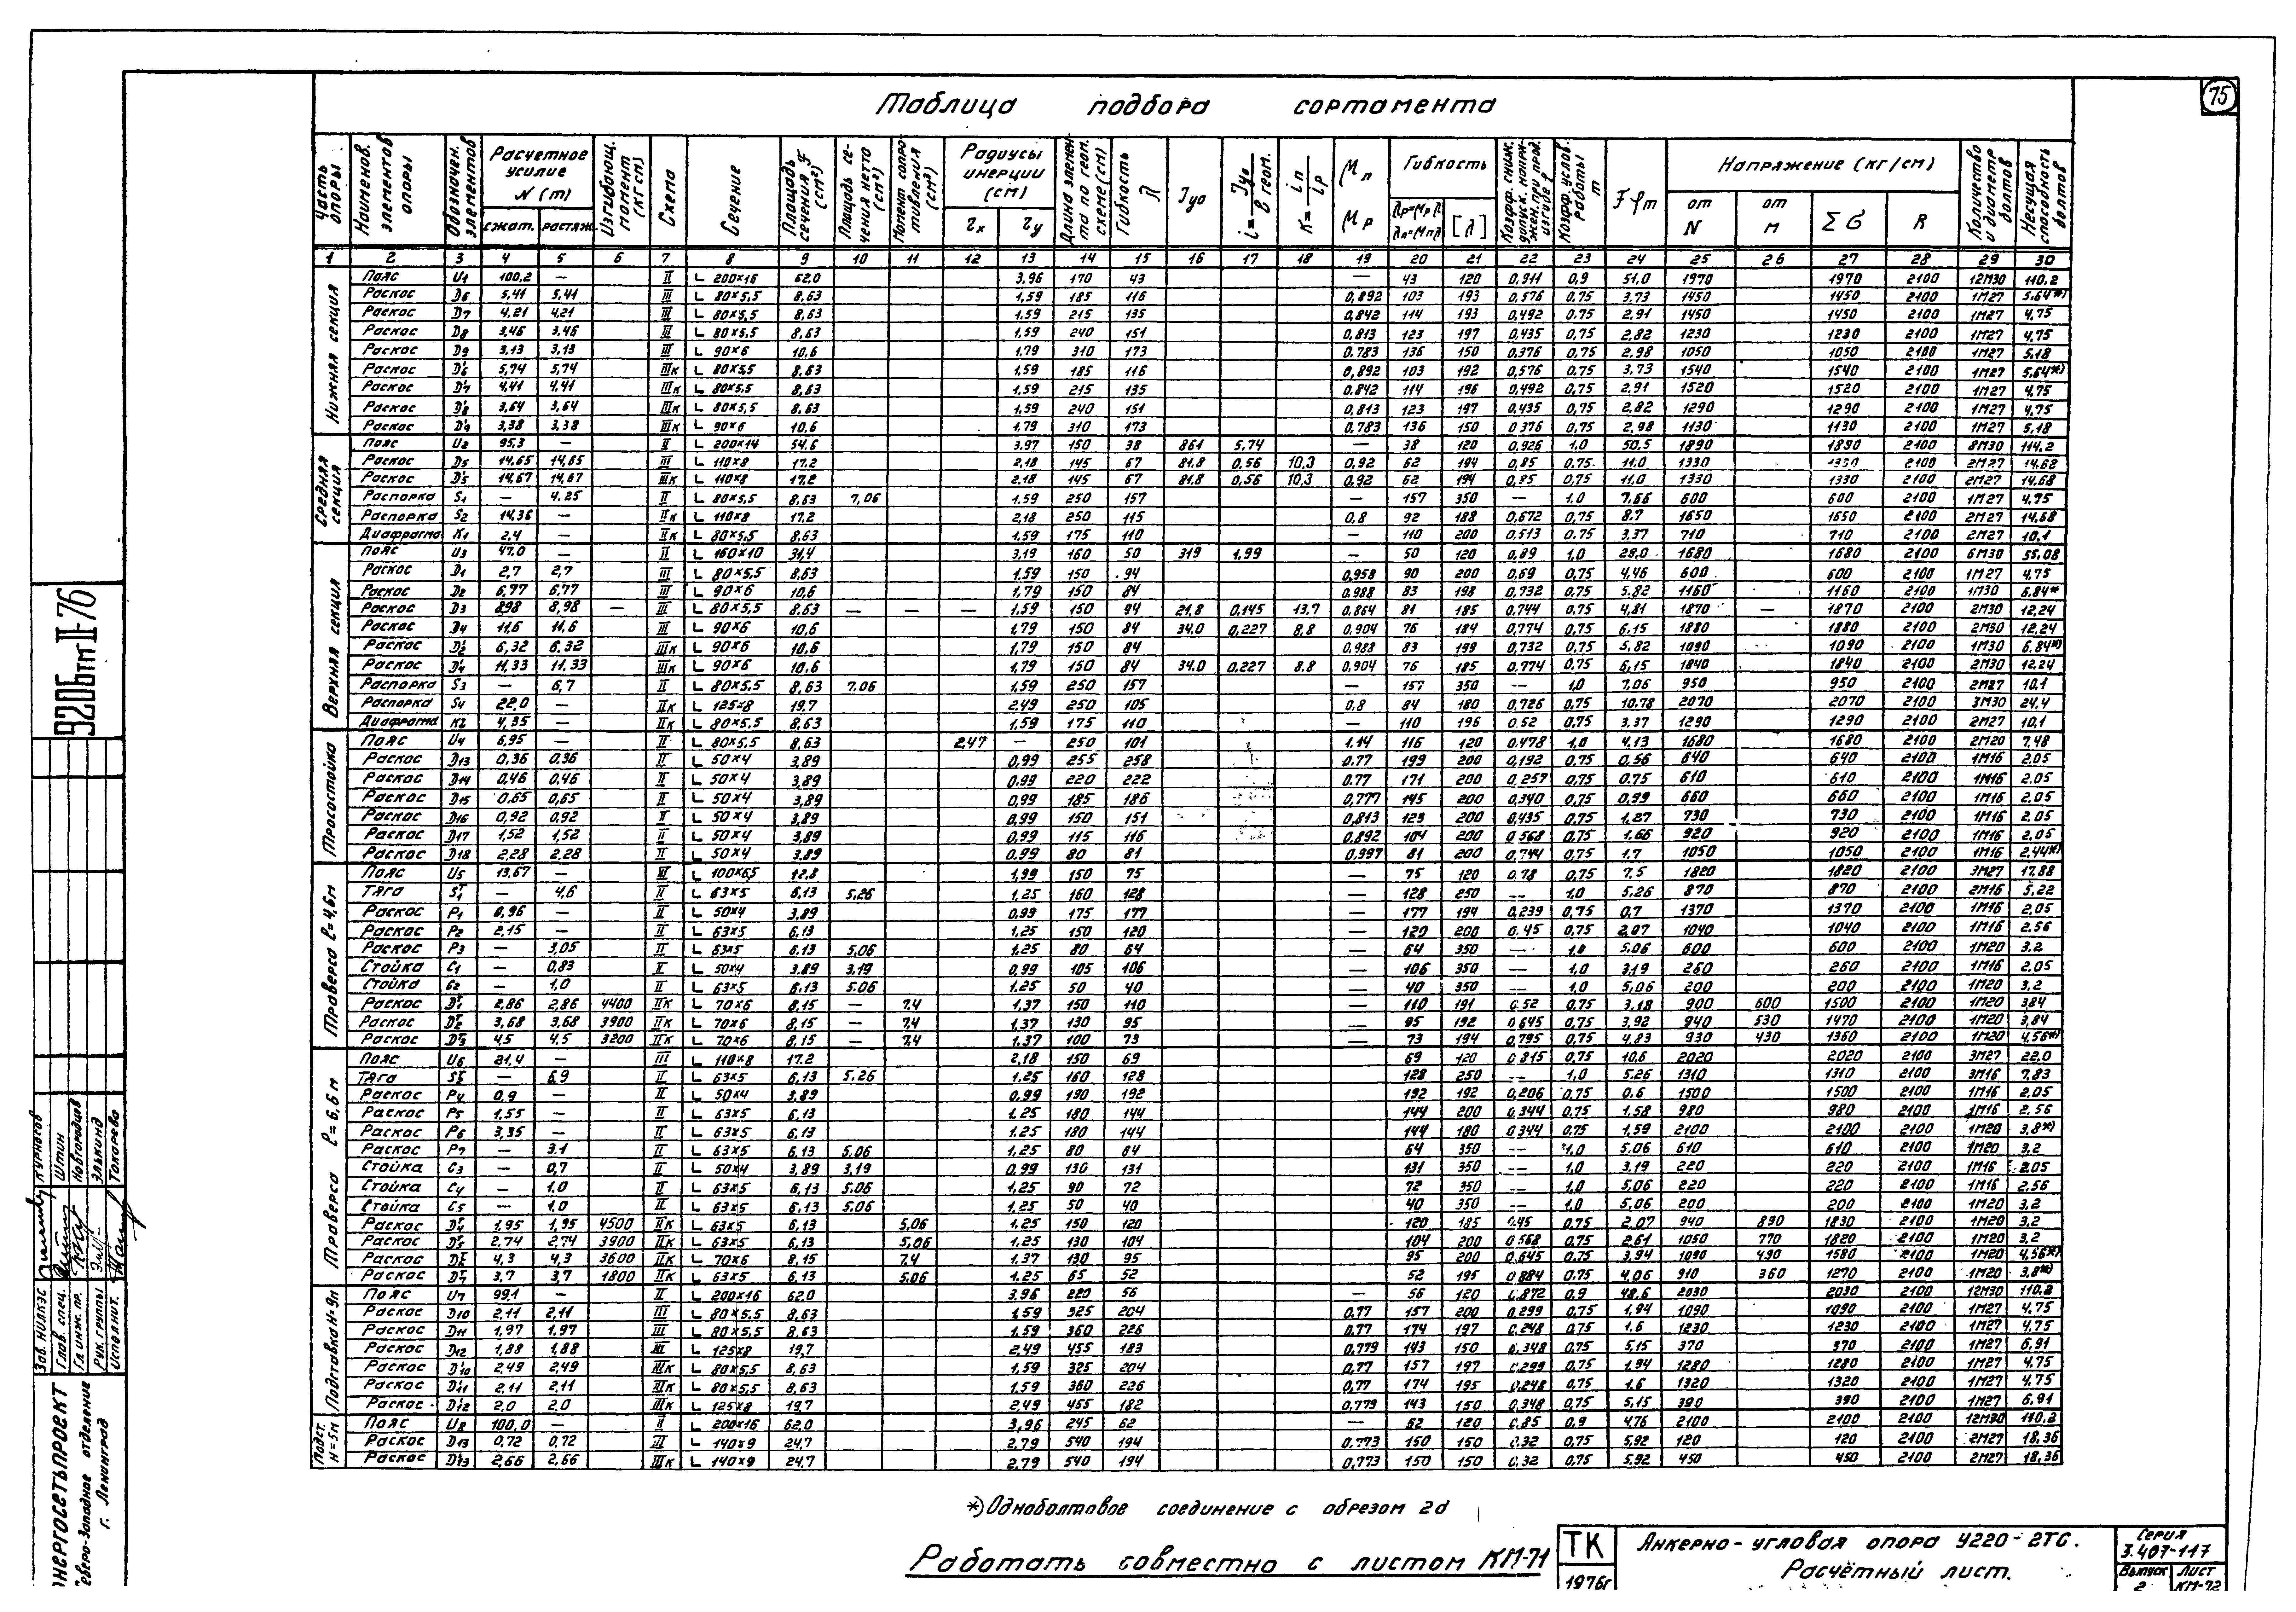 75
Таблица подбора сортамента
Часть опоры | Наименов. элементов опоры | Обозначен. элементов | Расчетное усилие N (т) | Изгибающ. момент (кг см) | Схема | Сечение | Площадь сечения F (см²) | Площадь сечения нетто (см²) | Момент сопротивления (см³) | Радиусы инерции (см) | Длина элемента по геом. схеме (см) | Гибкость λ | Jуо | i= Jуо / ℓ геом. | K= iп / iр | Мп Мр | Гибкость | Коэфф. сниж. допуск. напряжен. при прод. изгибе φ | Коэф. услов. работы m | Fφm | Напряжение (кг/см) | Количество и диаметр болтов | Несущая способность болтов
сжат. | растяж. | rx | ry | λр=(Мр)λ λп=(Мп)λ | [λ] | от N | от М | Σσ | R
1 2 3 4 5 6 7 8 9 10 11 12 13 14 15 16 17 18 19 20 21 22 23 24 25 26 27 28 29 30
Нижняя секция
Пояс U1 100,2 — II L 200×16 62,0 3,96 170 43 — 43 120 0,911 0,9 51,0 1970 1970 2100 12М30 110,2
Раскос D6 5,41 5,41 III L 80×5,5 8,63 1,59 185 116 0,892 103 193 0,576 0,75 3,73 1450 1450 2100 1М27 5,64*)
Раскос D7 4,21 4,21 III L 80×5,5 8,63 1,59 215 135 0,842 114 193 0,492 0,75 2,91 1450 1450 2100 1М27 4,75
Раскос D8 3,46 3,46 III L 80×5,5 8,63 1,59 240 151 0,813 123 197 0,435 0,75 2,82 1230 1230 2100 1М27 4,75
Раскос D9 3,13 3,13 III L 90×6 10,6 1,79 310 173 0,783 136 150 0,376 0,75 2,98 1050 1050 2100 1М27 5,18
Раскос D'6 5,74 5,74 IIIк L 80×5,5 8,63 1,59 185 116 0,892 103 192 0,576 0,75 3,73 1540 1540 2100 1М27 5,64*)
Раскос D'7 4,41 4,41 IIIк L 80×5,5 8,63 1,59 215 135 0,842 114 196 0,492 0,75 2,91 1520 1520 2100 1М27 4,75
Раскос D'8 3,64 3,64 IIIк L 80×5,5 8,63 1,59 240 151 0,813 123 197 0,435 0,75 2,82 1290 1290 2100 1М27 4,75
Раскос D'9 3,38 3,38 IIIк L 90×6 10,6 1,79 310 173 0,783 136 150 0,376 0,75 2,98 1130 1130 2100 1М27 5,18
Средняя секция
Пояс U2 95,3 — II L 200×14 54,6 3,97 150 38 861 5,74 — 38 120 0,926 1,0 50,5 1890 1890 2100 8М30 114,2
Раскос D5 14,65 14,65 III L 110×8 17,2 2,18 145 67 81,8 0,56 10,3 0,92 62 194 0,85 0,75 11,0 1330 1330 2100 2М27 14,68
Раскос D'5 14,67 14,67 IIIк L 110×8 17,2 2,18 145 67 81,8 0,56 10,3 0,92 62 194 0,85 0,75 11,0 1330 1330 2100 2М27 14,68
Распорка S1 — 4,25 II L 80×5,5 8,63 7,06 1,59 250 157 — 157 350 — 1,0 7,66 600 600 2100 1М27 4,75
Распорка S2 14,36 — IIк L 110×8 17,2 2,18 250 115 0,8 92 188 0,672 0,75 8,7 1650 1650 2100 2М27 14,68
Диафрагма K1 2,4 — IIк L 80×5,5 8,63 1,59 175 110 — 110 200 0,513 0,75 3,37 710 710 2100 2М27 10,1
Верхняя секция
Пояс U3 47,0 — II L 160×10 31,4 3,19 160 50 319 1,99 — 50 120 0,89 1,0 28,0 1680 1680 2100 6М30 55,08
Раскос D1 2,7 2,7 III L 80×5,5 8,63 1,59 150 94 0,958 90 200 0,69 0,75 4,46 600 600 2100 1М27 4,75
Раскос D2 6,77 6,77 III L 90×6 10,6 1,79 150 84 0,988 83 198 0,732 0,75 5,82 1160 1160 2100 1М30 6,84*
Раскос D3 8,98 8,98 — III L 80×5,5 8,63 — — — 1,59 150 94 21,8 0,145 13,7 0,864 81 185 0,744 0,75 4,81 1870 — 1870 2100 2М30 12,24
Раскос D4 11,6 11,6 III L 90×6 10,6 1,79 150 84 34,0 0,227 8,8 0,904 76 184 0,774 0,75 6,15 1880 1880 2100 2М30 12,24
Раскос D'2 6,32 6,32 IIIк L 90×6 10,6 1,79 150 84 0,988 83 199 0,732 0,75 5,82 1090 1090 2100 1М30 6,84*)
Раскос D'4 11,33 11,33 IIIк L 90×6 10,6 1,79 150 84 34,0 0,227 8,8 0,904 76 185 0,774 0,75 6,15 1840 1840 2100 2М30 12,24
Распорка S3 — 6,7 II L 80×5,5 8,63 7,06 1,59 250 157 — 157 350 — 1,0 7,06 950 950 2100 2М27 10,1
Распорка S4 22,0 — IIк L 125×8 19,7 2,49 250 105 0,8 84 180 0,726 0,75 10,78 2070 2070 2100 3М30 24,4
Диафрагма K2 4,35 — IIк L 80×5,5 8,63 1,59 175 110 — 110 196 0,52 0,75 3,37 1290 1290 2100 2М27 10,1
Тросостойка
Пояс U4 6,95 — II L 80×5,5 8,63 2,47 — 250 101 1,14 116 120 0,478 1,0 4,13 1680 1680 2100 2М20 7,48
Раскос D13 0,36 0,36 II L 50×4 3,89 0,99 255 258 0,77 199 200 0,192 0,75 0,56 640 640 2100 1М16 2,05
Раскос D14 0,46 0,46 II L 50×4 3,89 0,99 220 222 0,77 171 200 0,257 0,75 0,75 610 610 2100 1М16 2,05
Раскос D15 0,65 0,65 II L 50×4 3,89 0,99 185 186 0,777 145 200 0,340 0,75 0,99 660 660 2100 1М16 2,05
Раскос D16 0,92 0,92 II L 50×4 3,89 0,99 150 151 0,813 123 200 0,435 0,75 1,27 730 730 2100 1М16 2,05
Раскос D17 1,52 1,52 II L 50×4 3,89 0,99 115 116 0,892 104 200 0,568 0,75 1,66 920 920 2100 1М16 2,05
Раскос D18 2,28 2,28 II L 50×4 3,89 0,99 80 81 0,997 81 200 0,744 0,75 1,7 1050 1050 2100 1М16 2,44*)
Траверса ℓ=4,6м
Пояс U5 13,67 — III L 100×6,5 12,8 1,99 150 75 — 75 120 0,78 0,75 7,5 1820 1820 2100 3М27 17,88
Тяга Sт1 — 4,6 II L 63×5 6,13 5,26 1,25 160 128 — 128 250 — 1,0 5,26 870 870 2100 2М16 5,22
Раскос P1 0,96 — II L 50×4 3,89 0,99 175 177 — 177 194 0,239 0,75 0,7 1370 1370 2100 1М16 2,05
Раскос P2 2,15 — II L 63×5 6,13 1,25 150 120 — 120 200 0,45 0,75 2,07 1040 1040 2100 1М16 2,56
Раскос P3 — 3,05 II L 63×5 6,13 5,06 1,25 80 64 — 64 350 — 1,0 5,06 600 600 2100 1М20 3,2
Стойка C1 — 0,83 II L 50×4 3,89 3,19 0,99 105 106 — 106 350 — 1,0 3,19 260 260 2100 1М16 2,05
Стойка C2 — 1,0 II L 63×5 6,13 5,06 1,25 50 40 — 40 350 — 1,0 5,06 200 200 2100 1М20 3,2
Раскос Dт1 2,86 2,86 4400 IIк L 70×6 8,15 — 7,4 1,37 150 110 — 110 191 0,52 0,75 3,18 900 600 1500 2100 1М20 3,84
Раскос Dт2 3,68 3,68 3900 IIк L 70×6 8,15 — 7,4 1,37 130 95 — 95 192 0,645 0,75 3,92 940 530 1470 2100 1М20 3,84
Раскос Dт3 4,5 4,5 3200 IIк L 70×6 8,15 — 7,4 1,37 100 73 — 73 194 0,795 0,75 4,83 930 430 1360 2100 1М20 4,56*)
Траверса ℓ=6,6 м
Пояс U6 21,4 — III L 110×8 17,2 2,18 150 69 69 120 0,815 0,75 10,6 2020 2020 2100 3М27 22,0
Тяга Sт2 — 6,9 II L 63×5 6,13 5,26 1,25 160 128 128 250 — 1,0 5,26 1310 1310 2100 3М16 7,83
Раскос P4 0,9 — II L 50×4 3,89 0,99 190 192 192 192 0,206 0,75 0,6 1500 1500 2100 1М16 2,05
Раскос P5 1,55 — II L 63×5 6,13 1,25 180 144 144 200 0,344 0,75 1,58 980 980 2100 1М16 2,56
Раскос P6 3,35 — II L 63×5 6,13 1,25 180 144 144 180 0,344 0,75 1,59 2100 2100 2100 1М20 3,8*)
Раскос P7 — 3,1 II L 63×5 6,13 5,06 1,25 80 64 64 350 — 1,0 5,06 610 610 2100 1М20 3,2
Стойка C3 — 0,7 II L 50×4 3,89 3,19 0,99 130 131 131 350 — 1,0 3,19 220 220 2100 1М16 2,05
Стойка C4 — 1,0 II L 63×5 6,13 5,06 1,25 90 72 72 350 — 1,0 5,06 220 220 2100 1М16 2,56
Стойка C5 — 1,0 II L 63×5 6,13 5,06 1,25 50 40 40 350 — 1,0 5,06 200 200 2100 1М20 3,2
Раскос Dт4 1,95 1,95 4500 IIк L 63×5 6,13 5,06 1,25 150 120 120 185 0,45 0,75 2,07 940 890 1830 2100 1М20 3,2
Раскос Dт5 2,74 2,74 3900 IIк L 63×5 6,13 5,06 1,25 130 104 104 200 0,568 0,75 2,61 1050 770 1820 2100 1М20 3,2
Раскос Dт6 4,3 4,3 3600 IIк L 70×6 8,15 7,4 1,37 130 95 95 200 0,645 0,75 3,94 1090 490 1580 2100 1М20 4,56*)
Раскос Dт7 3,7 3,7 1800 IIк L 63×5 6,13 5,06 1,25 65 52 52 195 0,884 0,75 4,06 910 360 1270 2100 1М20 3,8*)
Подставка H=9м
Пояс U7 99,1 — II L 200×16 62,0 3,96 220 56 — 56 120 0,872 0,9 48,6 2030 2030 2100 12М30 110,2
Раскос D10 2,11 2,11 III L 80×5,5 8,63 1,59 325 204 0,77 157 200 0,299 0,75 1,94 1090 1090 2100 1М27 4,75
Раскос D11 1,97 1,97 III L 80×5,5 8,63 1,59 360 226 0,77 174 197 0,248 0,75 1,6 1230 1230 2100 1М27 4,75
Раскос D12 1,88 1,88 III L 125×8 19,7 2,49 455 183 0,779 143 150 0,348 0,75 5,15 370 370 2100 1М27 6,91
Раскос D'10 2,49 2,49 IIIк L 80×5,5 8,63 1,59 325 204 0,77 157 197 0,299 0,75 1,94 1280 1280 2100 1М27 4,75
Раскос D'11 2,11 2,11 IIIк L 80×5,5 8,63 1,59 360 226 0,77 174 195 0,248 0,75 1,6 1320 1320 2100 1М27 4,75
Раскос D'12 2,0 2,0 IIIк L 125×8 19,7 2,49 455 182 0,779 143 150 0,348 0,75 5,15 390 390 2100 1М27 6,91
Подст. H=5м
Пояс U8 100,0 — II L 200×16 62,0 3,96 245 62 — 62 120 0,85 0,9 4,76 2100 2100 2100 12М30 110,2
Раскос D13 0,72 0,72 III L 140×9 24,7 2,79 540 194 0,773 150 150 0,32 0,75 5,92 120 120 2100 2М27 18,36
Раскос D'13 2,66 2,66 IIIк L 140×9 24,7 2,79 540 194 0,773 150 150 0,32 0,75 5,92 450 450 2100 2М27 18,36
*) Одноболтовое соединение с обрезом 2d
Работать совместно с листом КМ-71
ТК
1976г
Анкерно-угловая опора У220-2ТС.
Расчётный лист.
Серия
3.407-117
Выпуск
2
Лист
КМ-72
9206тм II-76
Зав. НИЛКЭС Курносов
Глав. спец. Штин
Гл. инж. пр. Новгородцев
Рук. группы Элькинд
Исполнит. Токарева
Энергосетьпроект
Северо-Западное отделение
г. Ленинград